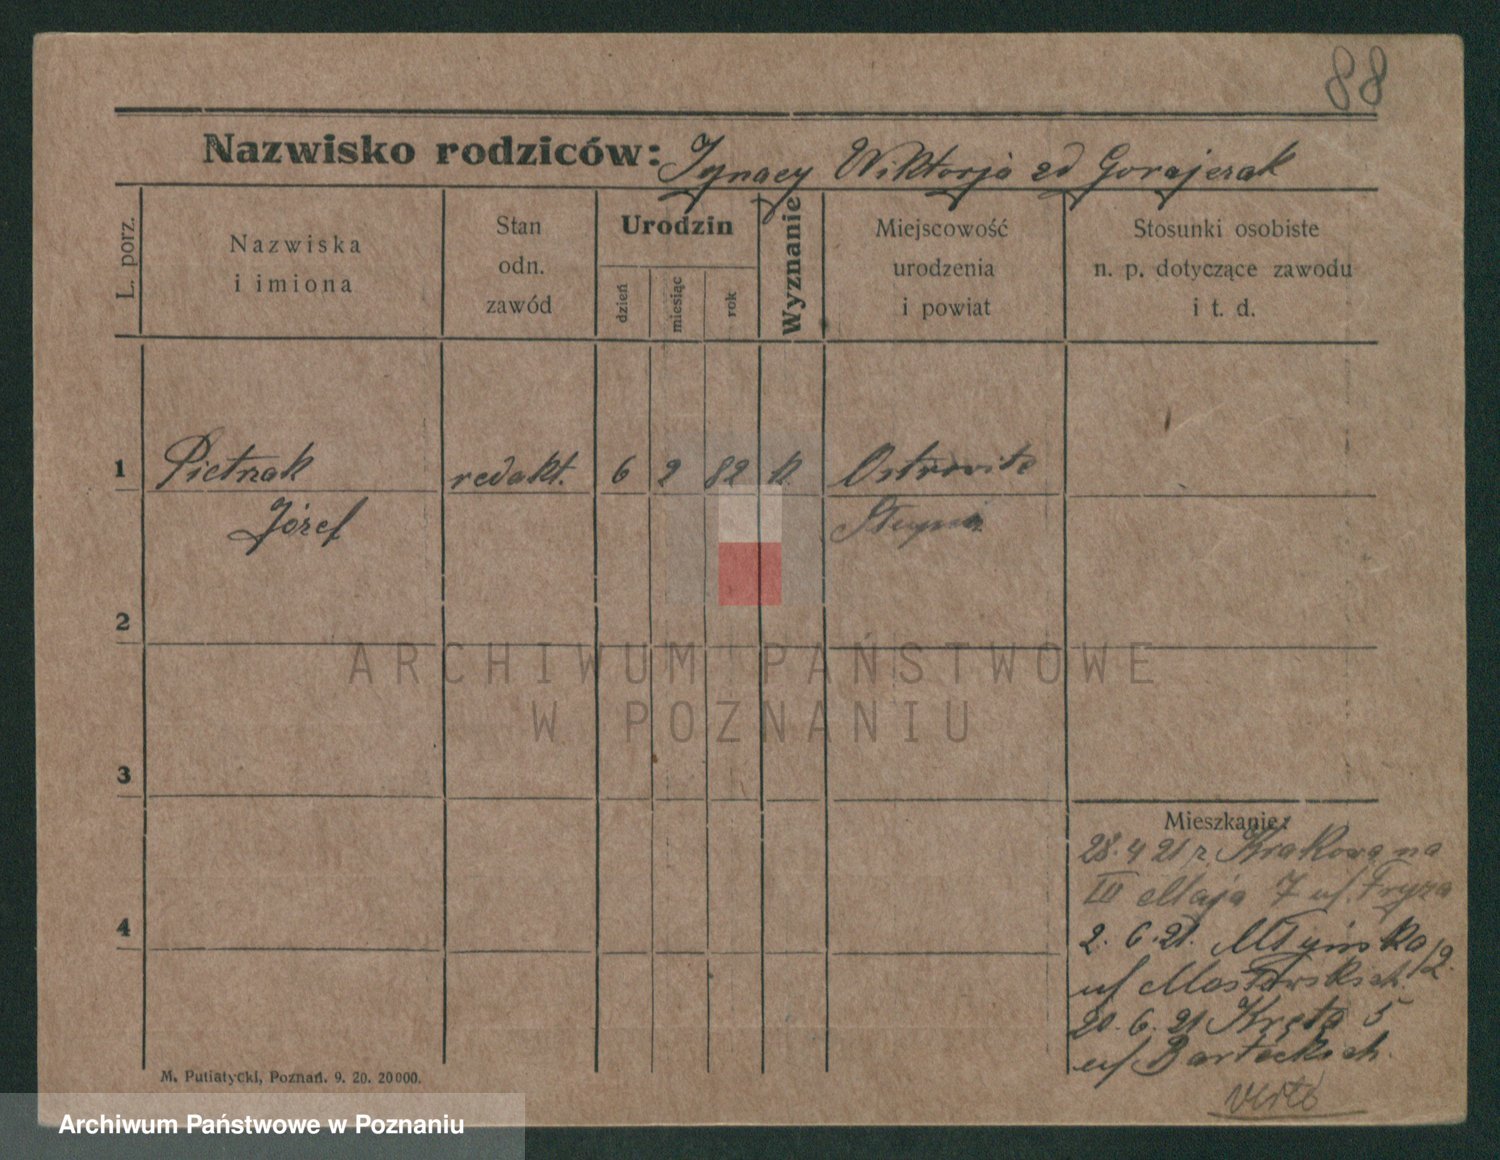 88
Nazwisko rodziców: Ignacy Wiktorja zd Gorajczak
L. porz.
Nazwiska i imiona
Stan odn. zawód
Urodzin
dzień
miesiąc
rok
Wyznanie
Miejscowość urodzenia i powiat
Stosunki osobiste n. p. dotyczące zawodu i t. d.
1 Pietrzak redakt. 6 2 82 k. Ostrowite
Józef
2
3
4
Mieszkanie:
28.4 21 r. Krakowa na
III Maja 7 u/. Fryza
2. 6. 21. Młyńska 12.
u/
20. 6. 21 Kręta 5
u/ Barteckich.
verte
M. Putiatycki, Poznań. 9. 20. 20000.
ARCHIWUM PAŃSTWOWE
W POZNANIU
Archiwum Państwowe w Poznaniu